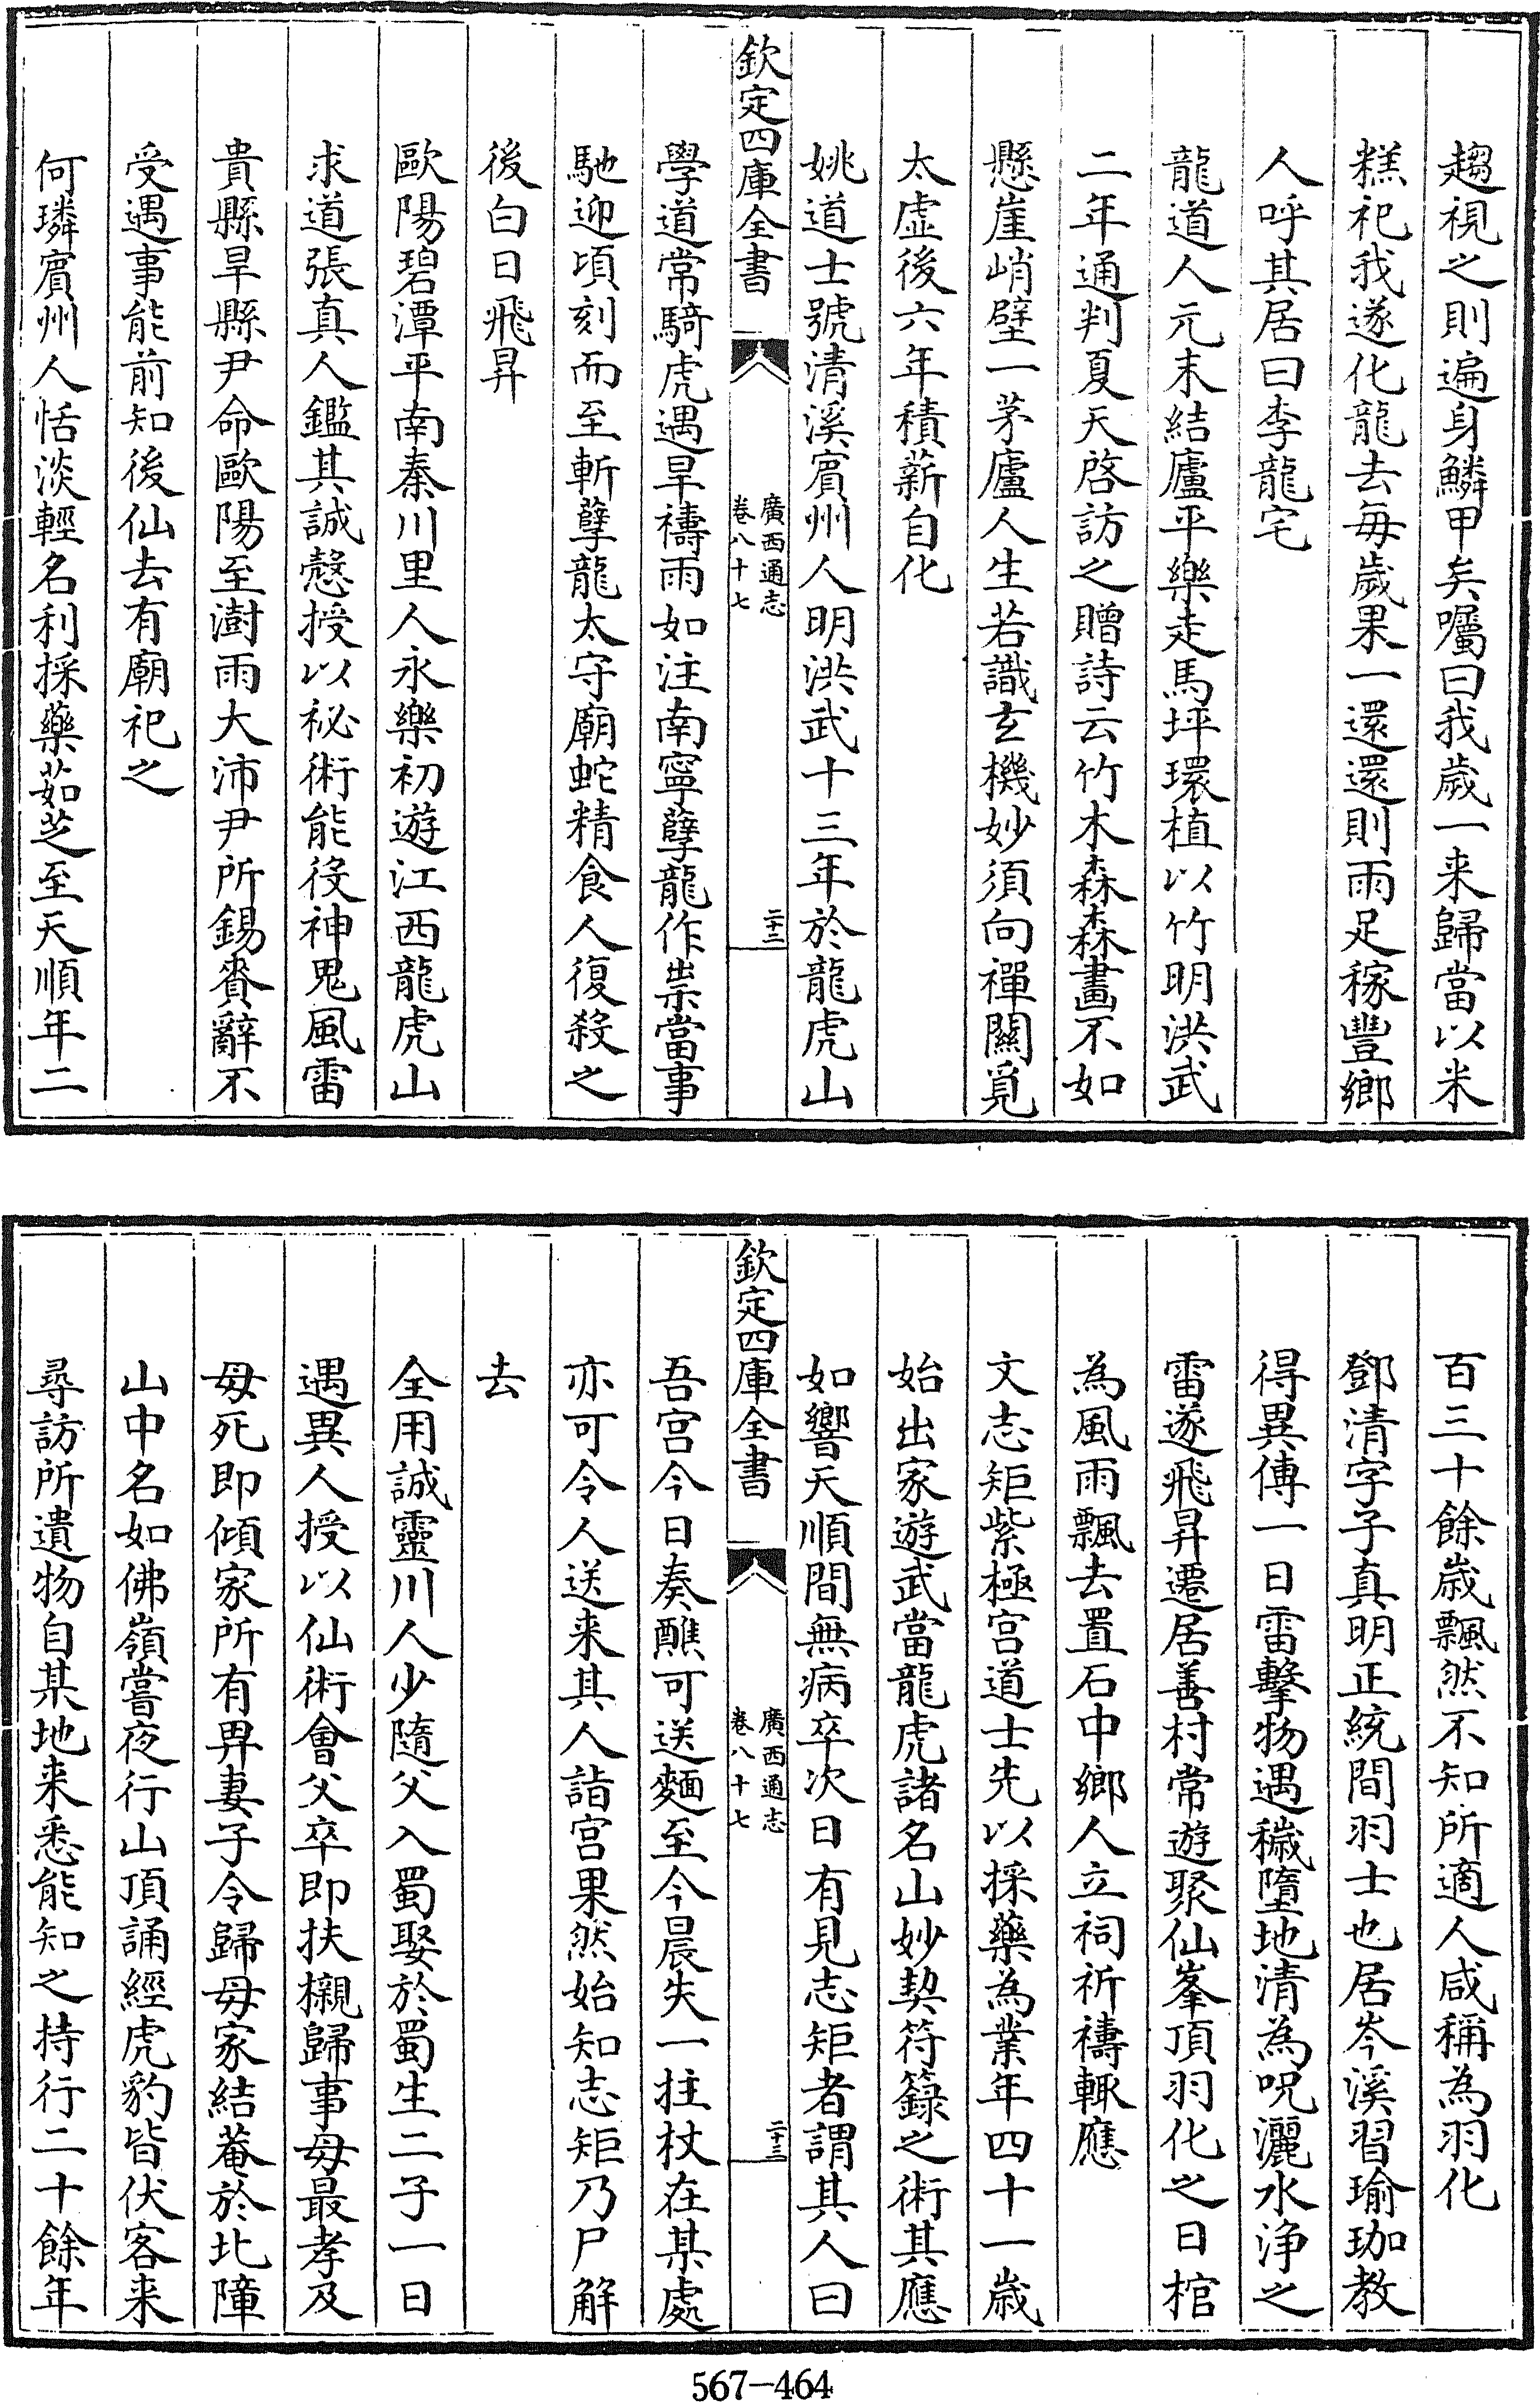 趨視之則遍身鱗甲矣囑曰我歲一来歸當以米
糕祀我遂化龍去每歲果一還還則雨足稼豐鄉
人呼其居曰李龍宅
龍道人元末結廬平樂走馬坪環植以竹明洪武
二年通判夏天啓訪之贈詩云竹木森森畫不如
懸崖峭壁一茅廬人生若識玄機妙須向禪關覓
太虛後六年積薪自化
姚道士號清溪賓州人明洪武十三年於龍虎山
欽定四庫全書
廣西通志
卷八十七
二十二
學道常騎虎遇旱禱雨如注南寧孽龍作祟當事
馳迎頃刻而至斬孽龍太守廟蛇精食人復殺之
後白日飛昇
歐陽碧潭平南秦川里人永樂初遊江西龍虎山
求道張真人鑑其誠慤授以祕術能役神鬼風雷
貴縣旱縣尹命歐陽至澍雨大沛尹所錫賚辭不
受遇事能前知後仙去有廟祀之
何璘賓州人恬淡輕名利採藥茹芝至天順年二
百三十餘歲飄然不知所適人咸稱為羽化
鄧清字子真明正統間羽士也居岑溪習瑜珈教
得異傳一日雷擊物遇穢墮地清為呪灑水淨之
雷遂飛昇遷居善村常遊聚仙峯頂羽化之日棺
為風雨飄去置石中鄉人立祠祈禱輒應
文志矩紫極宮道士先以採藥為業年四十一歲
始出家遊武當龍虎諸名山妙契符籙之術其應
如響天順間無病卒次日有見志矩者謂其人曰
欽定四庫全書
廣西通志
卷八十七
二十三
吾宮今日奏醮可送麵至今晨失一拄杖在某處
亦可令人送来其人詣宮果然始知志矩乃尸解
去
全用誠靈川人少隨父入蜀娶於蜀生二子一日
遇異人授以仙術會父卒即扶櫬歸事母最孝及
母死即傾家所有畀妻子令歸母家結菴於北障
山中名如佛嶺嘗夜行山頂誦經虎豹皆伏客来
尋訪所遺物自某地来悉能知之持行二十餘年
567—464